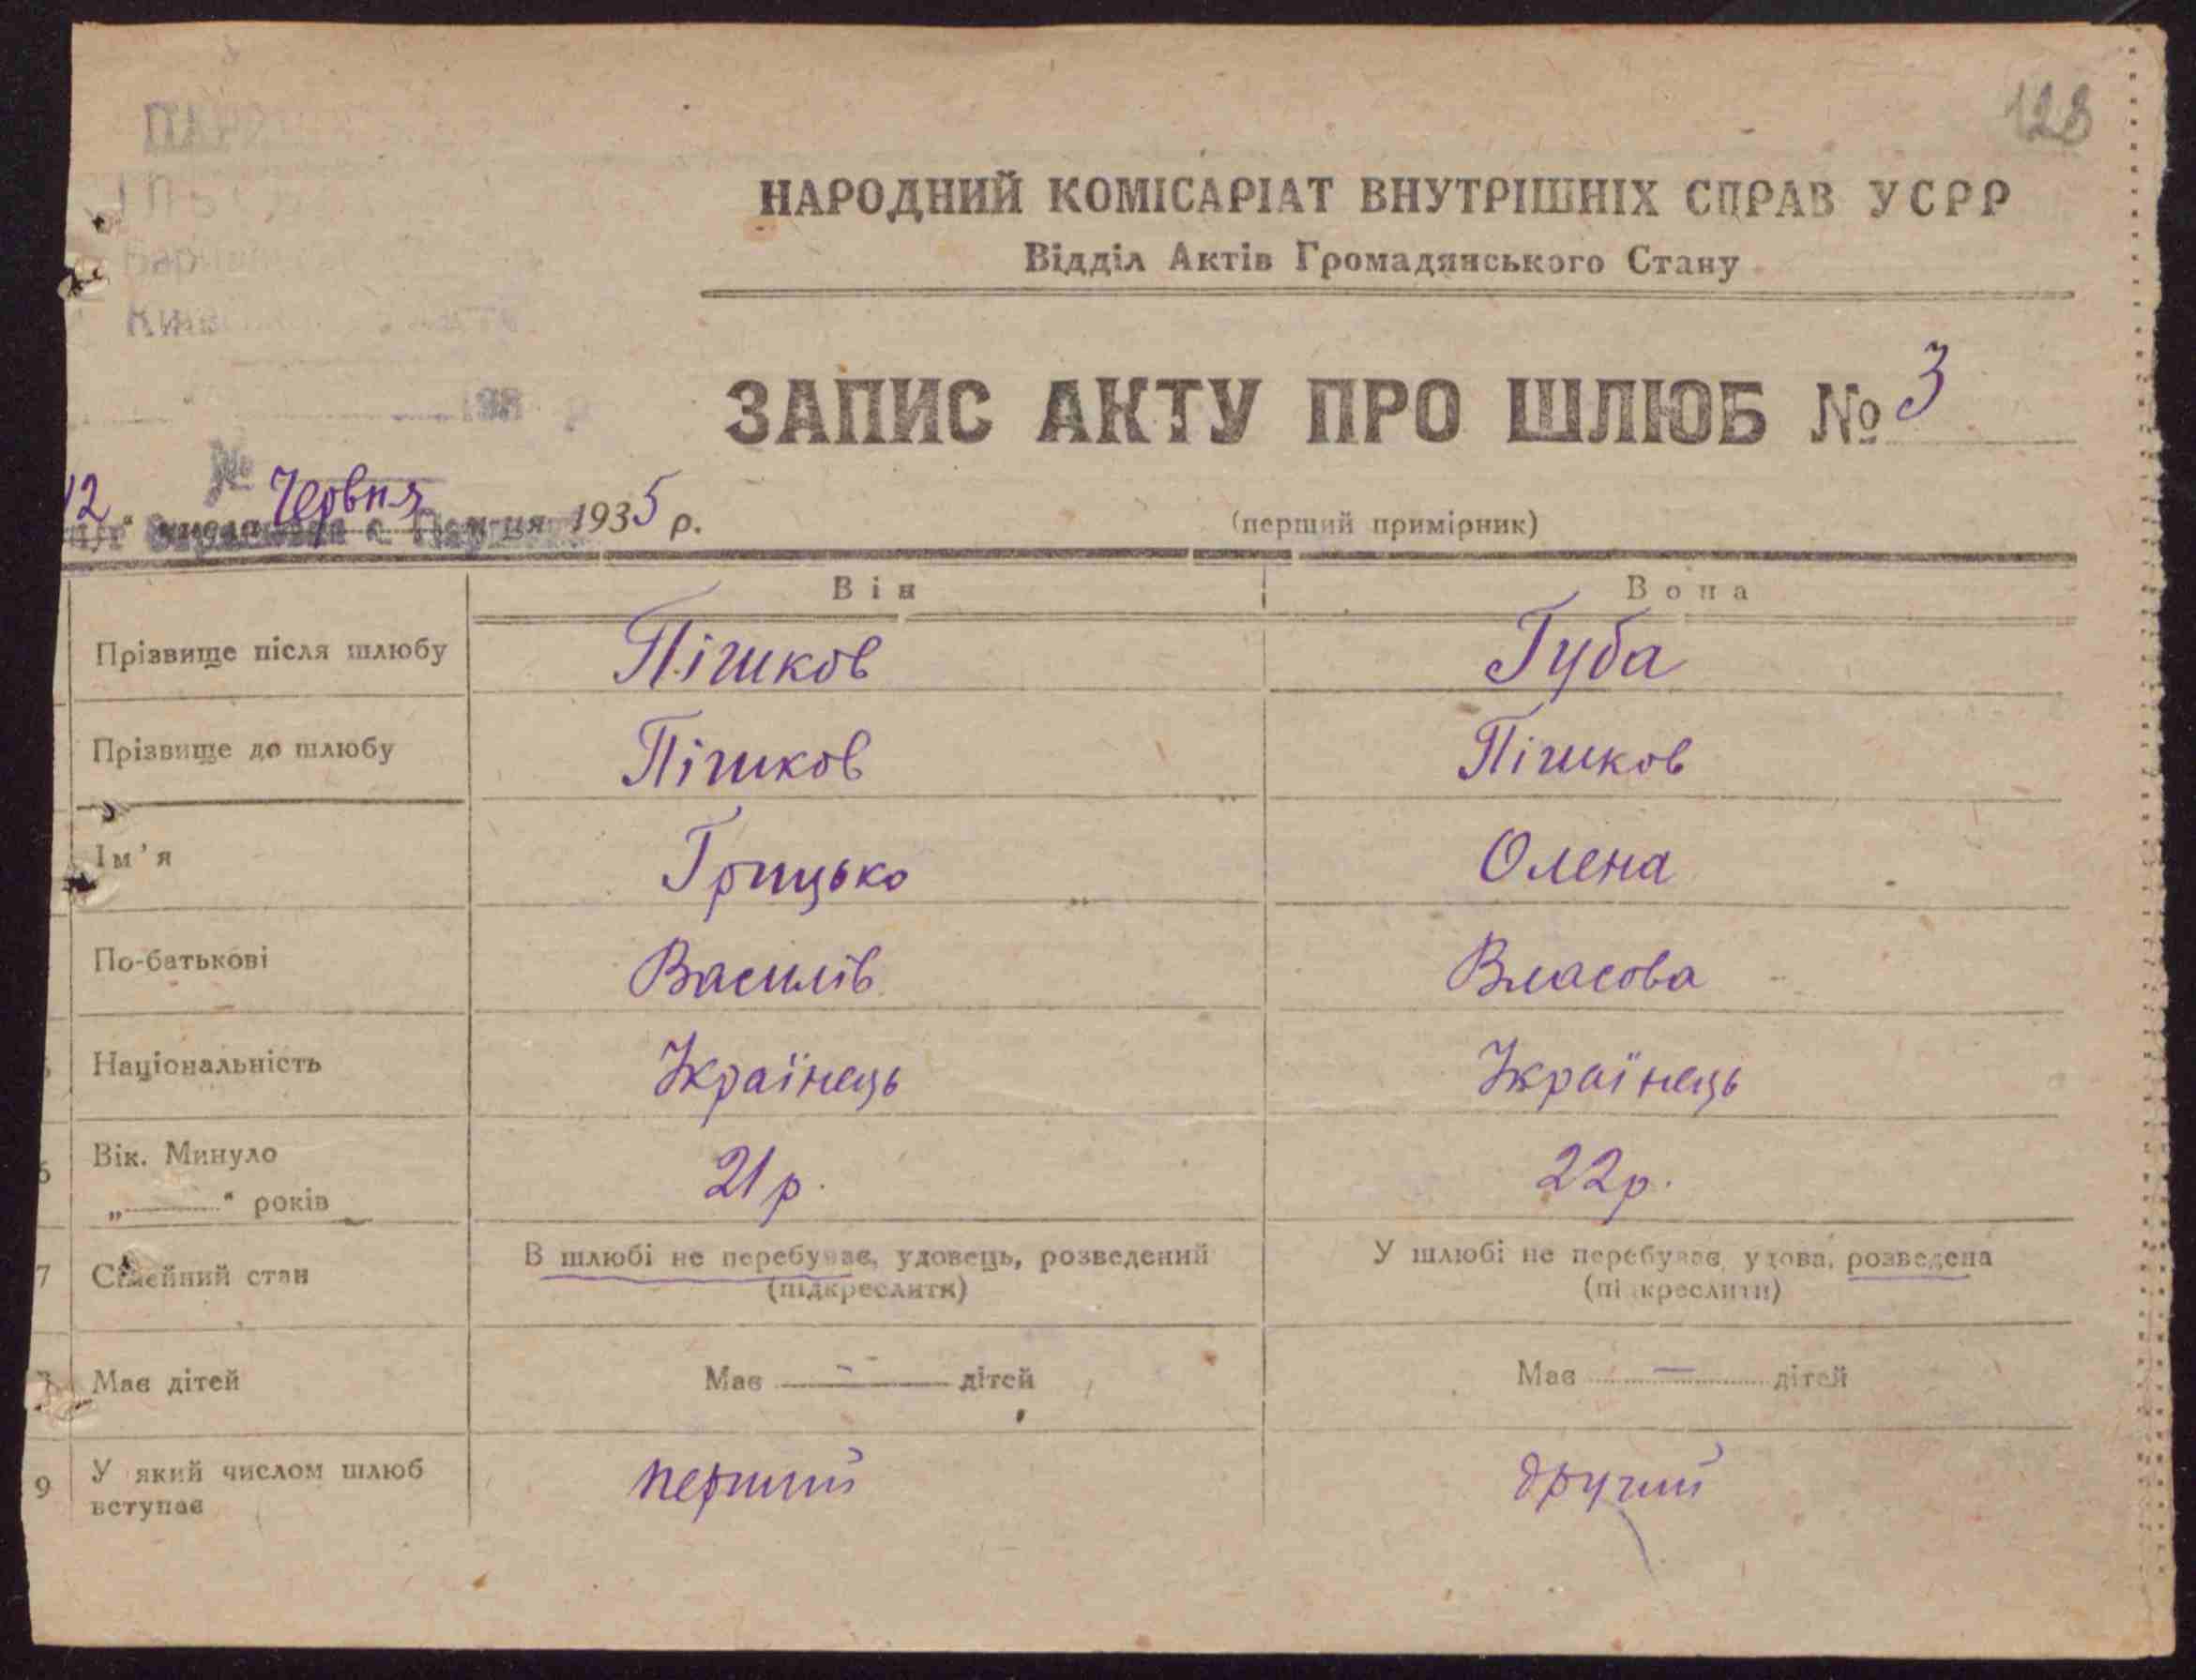 128
НАРОДНИЙ КОМІСАРІАТ ВНУТРІШНІХ СПРАВ УСРР
Відділ Актів Громадянського Стану
ЗАПИС АКТУ ПРО ШЛЮБ № 3
12 " числа Червня м-ця 1935 р.
(перший примірник)
Він Вона
Прізвище після шлюбу Пішков Губа
Прізвище до шлюбу Пішков Пішков
Ім'я Грицько Олена
По-батькові Василів Власова
Національність Українець Українець
6 Вік. Минуло 21 р. 22 р.
„ " років
7 Сімейний стан В шлюбі не перебуває, удовець, розведений У шлюбі не перебуває, удова, розведена
(підкреслити) (підкреслити)
Має дітей Має — дітей Має — дітей
9 У який числом шлюб
вступає перший другий